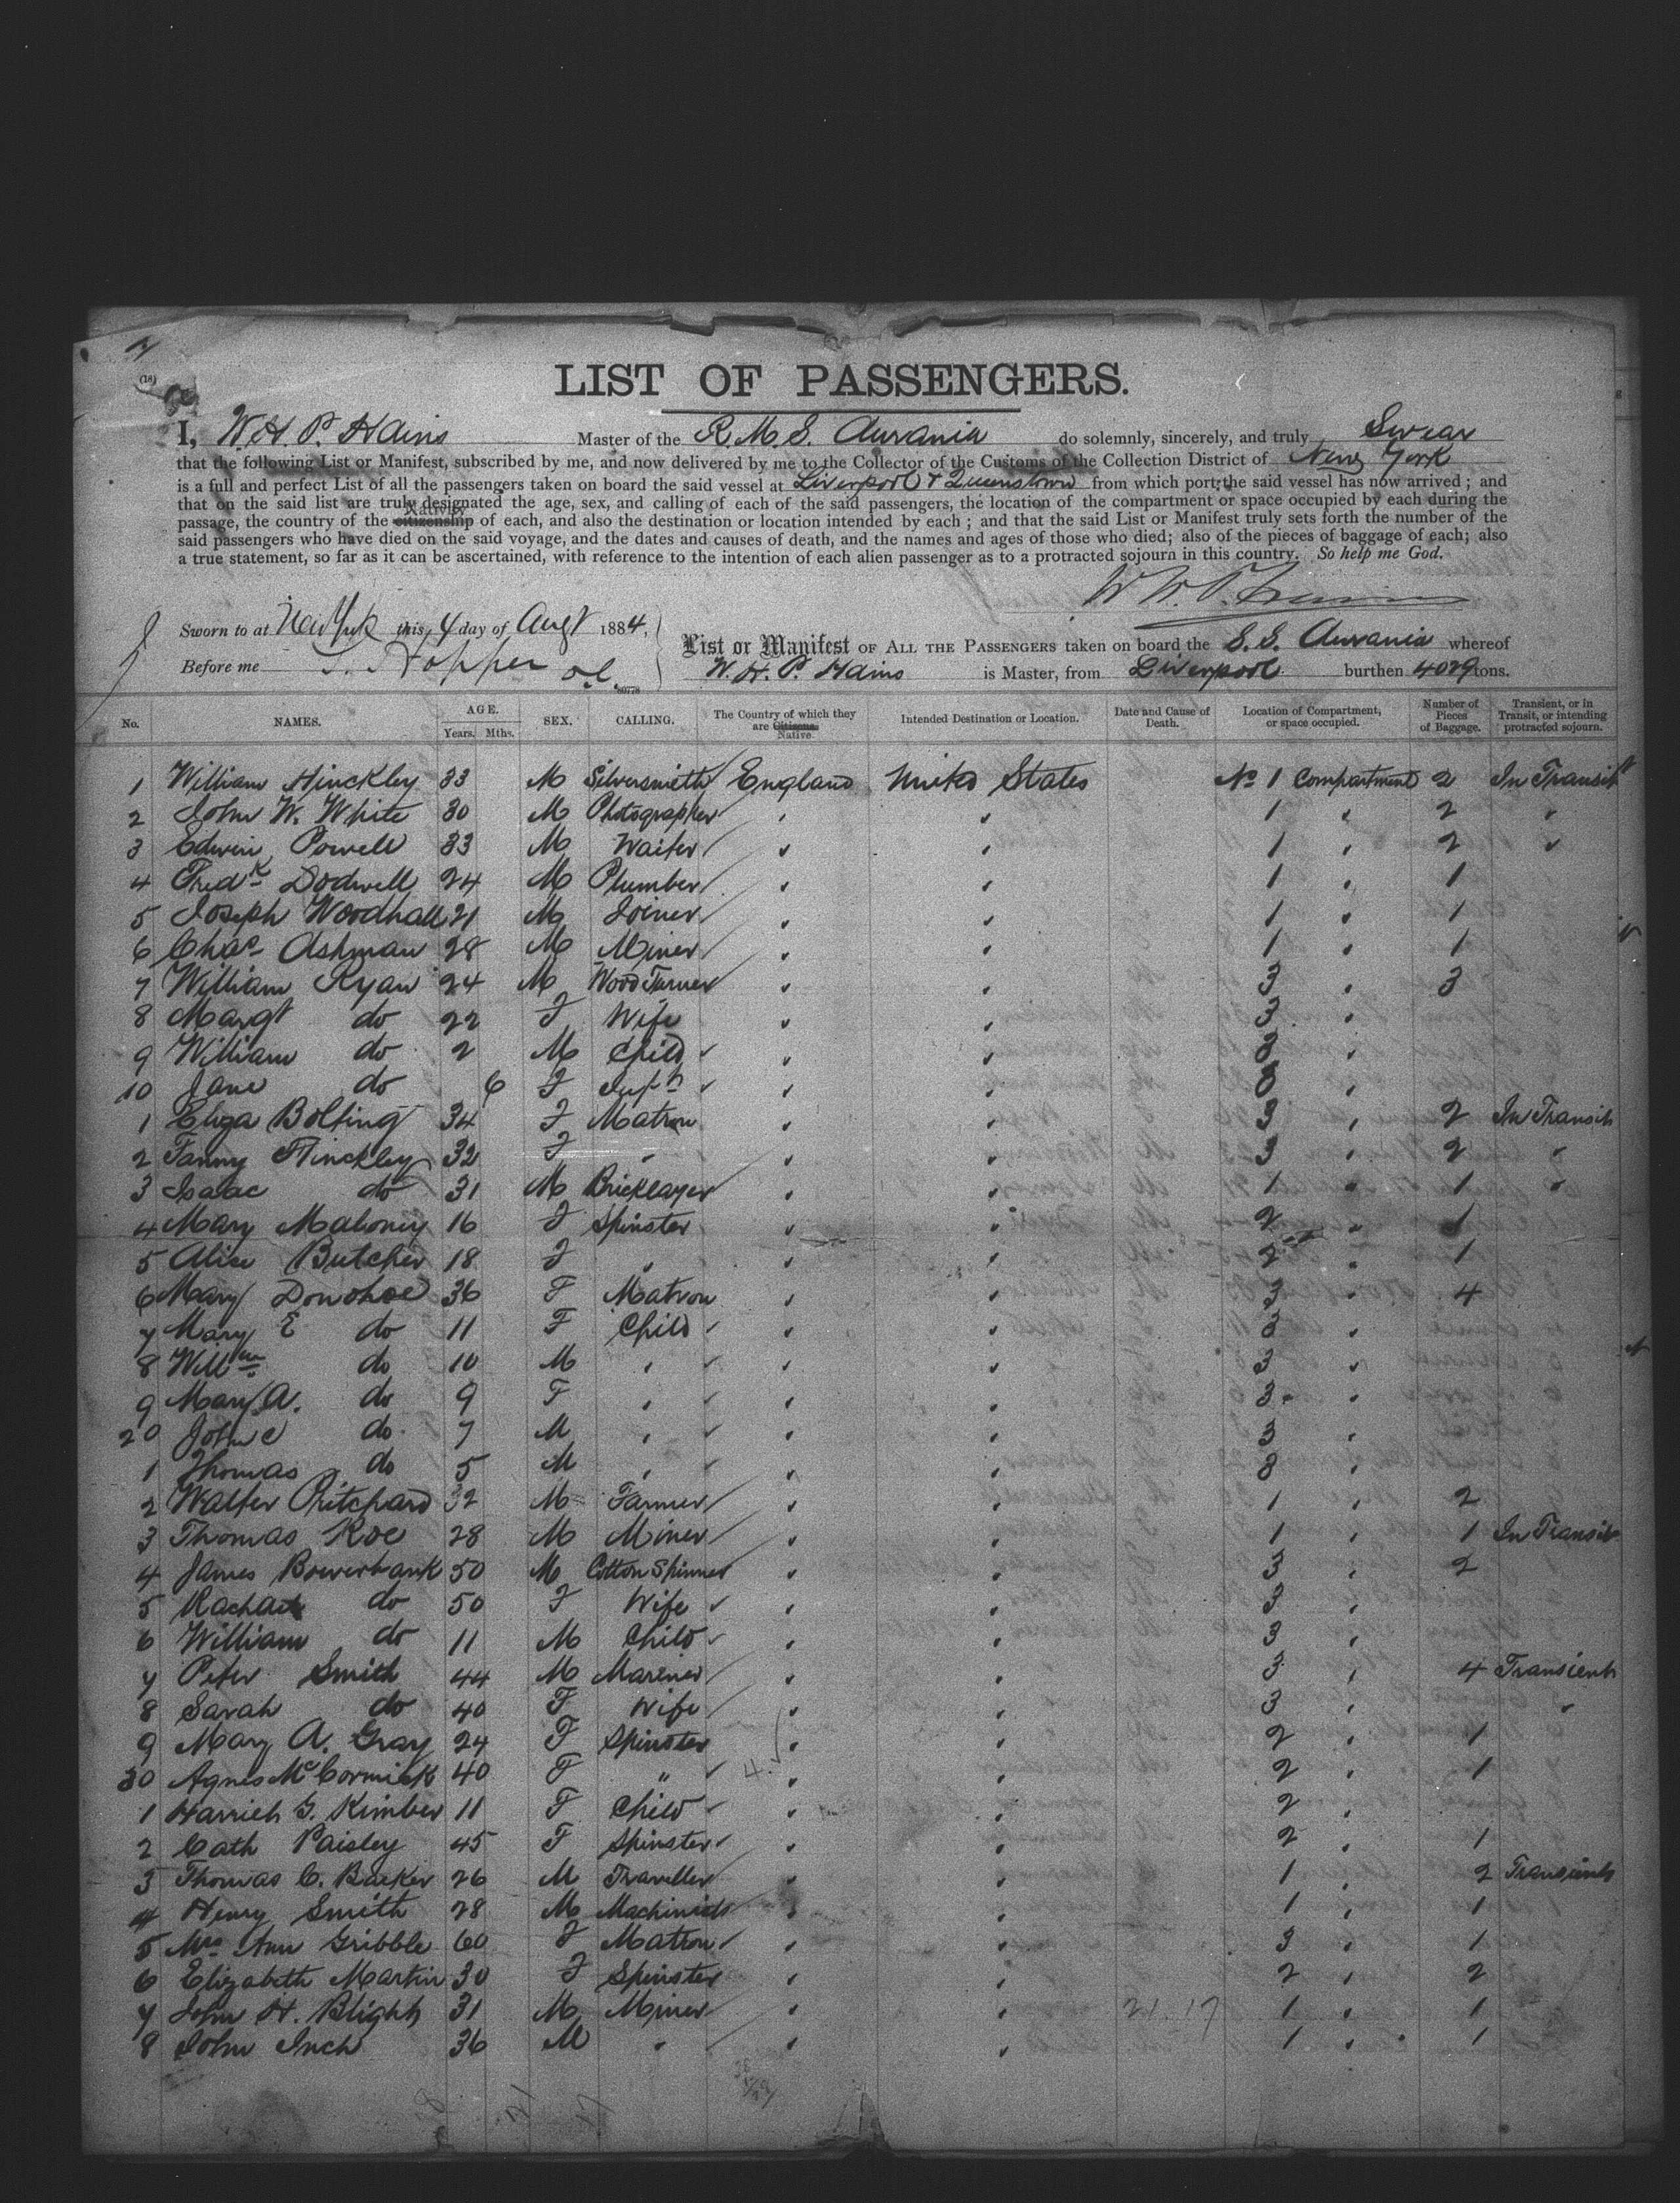 (18)
LIST OF PASSENGERS.
I, W. H. P. Hains Master of the R. M. S. Aurania do solemnly, sincerely, and truly Swear
that the following List or Manifest, subscribed by me, and now delivered by me to the Collector of the Customs of the Collection District of New York
is a full and perfect List of all the passengers taken on board the said vessel at Liverpool & Queenstown from which port the said vessel has now arrived ; and
that on the said list are truly designated the age, sex, and calling of each of the said passengers, the location of the compartment or space occupied by each during the
Nativity
passage, the country of the citizenship of each, and also the destination or location intended by each ; and that the said List or Manifest truly sets forth the number of the
said passengers who have died on the said voyage, and the dates and causes of death, and the names and ages of those who died; also of the pieces of baggage of each; also
a true statement, so far as it can be ascertained, with reference to the intention of each alien passenger as to a protracted sojourn in this country. So help me God.
Sworn to at New York this 4 day of Augt 1884,
Before me T. Hopper
List or Manifest OF ALL THE PASSENGERS taken on board the S. S. Aurania whereof
W. H. P. Hains is Master, from Liverpool burthen 4029 tons.
No. NAMES. AGE. Years. Mths. SEX. CALLING. The Country of which they are Citizens. Native. Intended Destination or Location. Date and Cause of Death. Location of Compartment, or space occupied. Number of Pieces of Baggage. Transient, or in Transit, or intending protracted sojourn.
1 William Hinckley 33 M Silversmith England United States No 1 Compartment 2 In Transit
2 John W. White 30 M Photographer " " 1 " 2 "
3 Edwin Powell 33 M Waiter " " 1 " 2 "
4 Fredk Dodwell 24 M Plumber " " 1 " 1
5 Joseph Woodhall 21 M Joiner " " 1 " 1
6 Chas Ashman 28 M Miner " " 1 " 1
7 William Ryan 24 M Wood Turner " " 3 " 3
8 Margt do 22 F Wife " " 3 "
9 William do 2 M Child " " 3 "
10 Jane do 6 F Inft " " 3 "
1 Eliza Bolting 34 F Matron " " 3 " 2 In Transit
2 Fanny Hinckley 32 F " " " 3 " 2 "
3 Isaac do 31 M Bricklayer " " 1 " 1 "
4 Mary Mahoney 16 F Spinster " " 2 " 1
5 Alice Butcher 18 F " " " 2 " 1
6 Mary Donohoe 36 F Matron " " 3 " 4
7 Mary E do 11 F Child " " 3 "
8 Willm do 10 M " " " 3 "
9 Mary A. do 9 F " " " 3 "
20 John C do 7 M " " " 3 "
1 Thomas do 5 M " " " 3 "
2 Walter Pritchard 32 M Farmer " " 1 " 2
3 Thomas Roe 28 M Miner " " 1 " 1 In Transit
4 James Bowerbank 50 M Cotton Spinner " " 3 " 2
5 Rachael do 50 F Wife " " 3 "
6 William do 11 M Child " " 3 "
7 Peter Smith 44 M Mariner " " 3 " 4 Transient
8 Sarah do 40 F Wife " " 3 " "
9 Mary A. Gray 24 F Spinster " " 2 " 1
30 Agnes McCormick 40 F " " " 2 " 1
1 Harriett G. Kimber 11 F Child " " 2 "
2 Cath Paisley 45 F Spinster " " 2 " 1
3 Thomas C. Barker 26 M Traveller " " 1 " 2 Transient
4 Henry Smith 28 M Machinist " " 1 " 1
5 Mrs Ann Gribble 60 F Matron " " 3 " 1
6 Elizabeth Martin 30 F Spinster " " 2 " 2
7 John H. Blight 31 M Miner " " 21.17 1 " 1
8 John Inch 36 M " " " 1 " 1